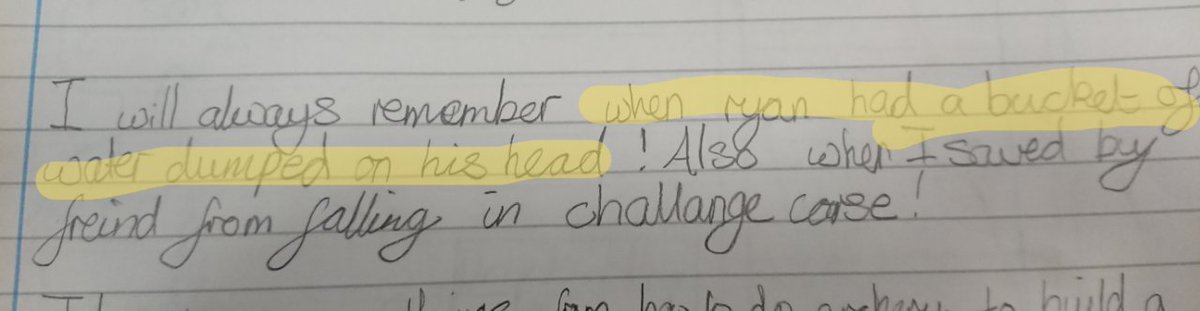 I will always remember when ryan had a bucket of
water dumped on his head! Also when I saved by
freind from falling in challange corse!
to build a